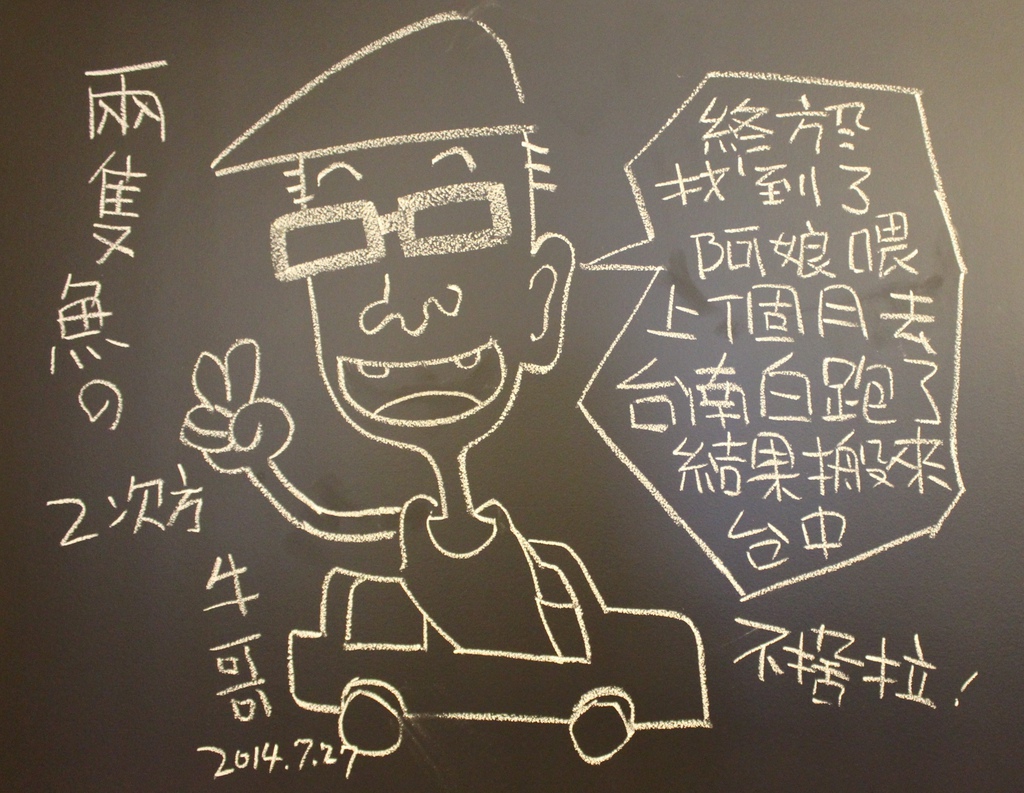 兩隻魚の
2次方
牛哥
2014.7.27
終於
找到了
阿娘喂
上個月去
台南白跑了
結果搬來
台中
不捨拉!